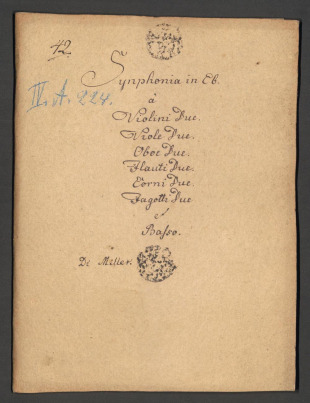 42
Synphonia in Eb.
IV. A. 224.
à
Violini Due.
Viole Due.
Oboe Due.
Flauti Due.
Corni Due.
Fagotti Due
e
Basso.
Di Miller.